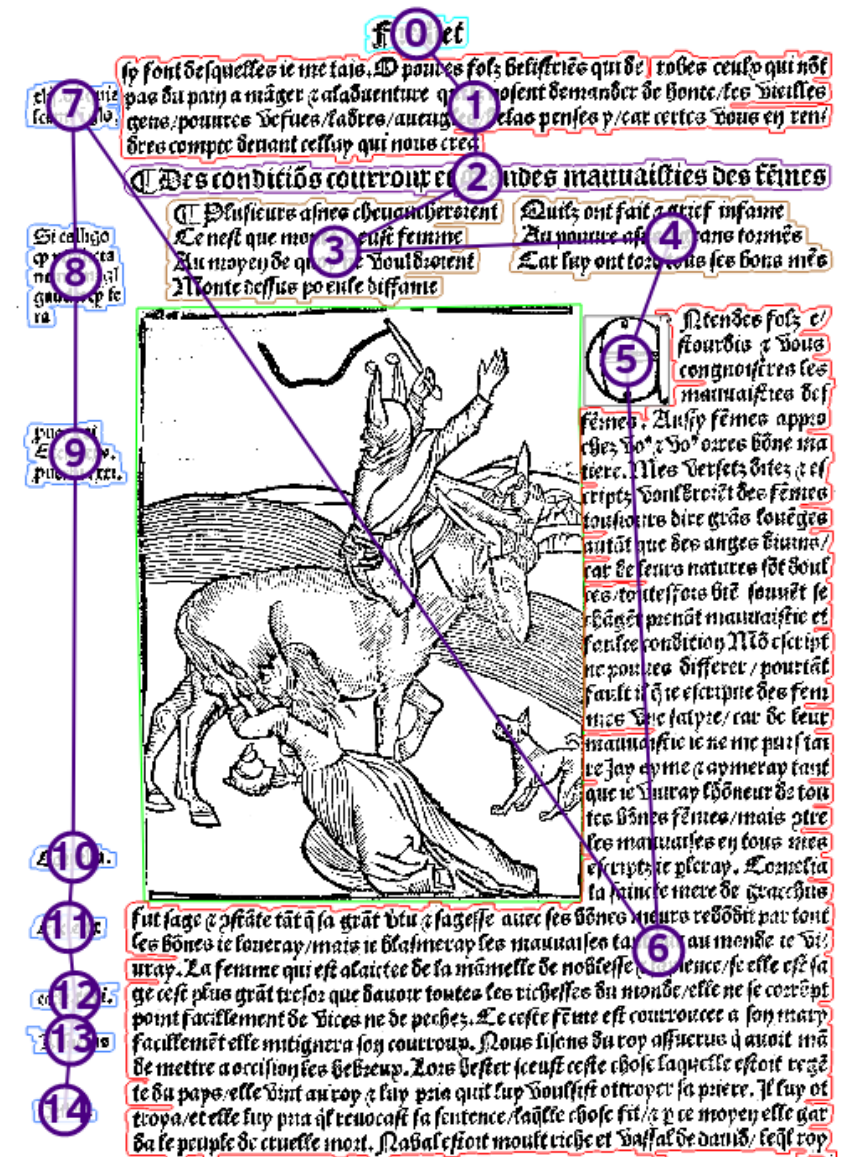 sy font desquelles ie me tais. O poures folz belistriēs qui de robes ceulx qui nōt
pas du pain a māger ⁊ aladuenture nosent demander de honte/les vieilles
gens/pourres vefues/ladres/aueug helas penses y/car certes vous en ren/
dres compte deuant celluy qui nous crea
¶ Des conditiōs courroux et grandes mauuaisties des fēmes
¶ Plusieurs asnes cheuaucheroient
Ce nest que mon eust femme
Au moyen de quoy vouldroient
Monte dessus po eulx diffame
Quilz ont fait a grief infame
Au pouure asne grans tormēs
Car luy ont tors tous ses bons mēs
Si caligo
ra
Ntendes folz e/
stourdis ⁊ vous
congnoistres les
mauuaisties des
fēmes. Aussy fēmes appro
ches voꝰ ⁊ voꝰ orres bōne ma
tiere. Mes versetz ditez ⁊ es
criptz vouldroiēt des fēmes
tousiours dire grās louēges
autāt que des anges diuins/
car de leurs natures sōt doul
ces/toutesfois biē souuēt se
chāgēt prenāt mauuaistie et
faulce condition Mō escript
ne pourres differer/pourtāt
fault il q̄ ie escripue des fem
mes vne satyre/car de leur
mauuaistie ie ne me puis tai
re Jay ayme ⁊ aymeray tant
que ie viuray lhōneur de tou
tes bōnes fēmes/mais ꝯtre
les mauuaises en tous mes
escriptz ie pleray. Cornelia
la saincte mere de gracchus
fut sage ⁊ ꝯstāte tāt q̄ sa grāt vtu ⁊ sagesse auec ses bōnes meurs redōdit par tout
les bōnes ie loueray/mais ie blasmeray les mauuaises tant au monde ie vi/
uray. La femme qui est alaictee de la māmelle de noblesse ⁊ science/se elle est sa
ge cest plus grāt tresor que dauoir toutes les richesses du monde/elle ne se corrōpt
point facillement de vices ne de pechez. Le ceste fēme est courroucer a son mary
facillemēt elle mitignera son courroux. Nous lisons du roy assuerus q̄ auoit mā
de mettre a occision les hebreux. Lors hester sceust ceste chose laquelle estoit regē
te du pays/elle vint au roy ⁊ luy pria quil luy voulsist ottroyer sa priere. Il luy ot
troya/et elle luy pria q̄l reuocast sa sentence/laq̄lle chose fit/⁊ p ce moyen elle gar
da le peuple de cruelle mort. Nabal estoit moult riche et vassal de dauid/leq̄l roy
0
1
2
3
4
5
6
7
8
9
10
11
12
13
14